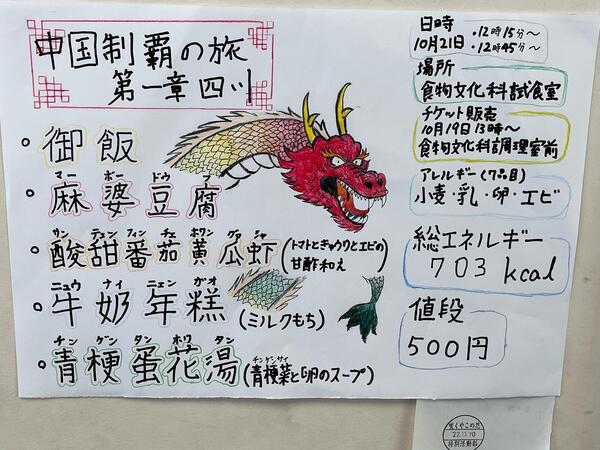 中国制覇の旅
第一章 四川
御飯
マー ボー ドウ フ
麻婆豆腐
サン テェン フィン チェ ホワン グァ シャ
酸甜番茄黄瓜虾(トマトときゅうりとエビの
甘酢和え)
ニュウ ナイ ニェン ガオ
牛奶年糕(ミルクもち)
チン ゲン タン ホワ タン
青梗蛋花湯(青梗菜と卵のスープ)
チンゲンサイ
日時 ・12時15分〜
10月21日 ・12時45分〜
場所
食物文化科試食室
チケット販売
10月19日 13時〜
食物文化科調理室前
アレルギー(7品目)
小麦・乳・卵・エビ
総エネルギー
703kcal
値段
500円
咲くやこの花
22.10.10
特別活動部